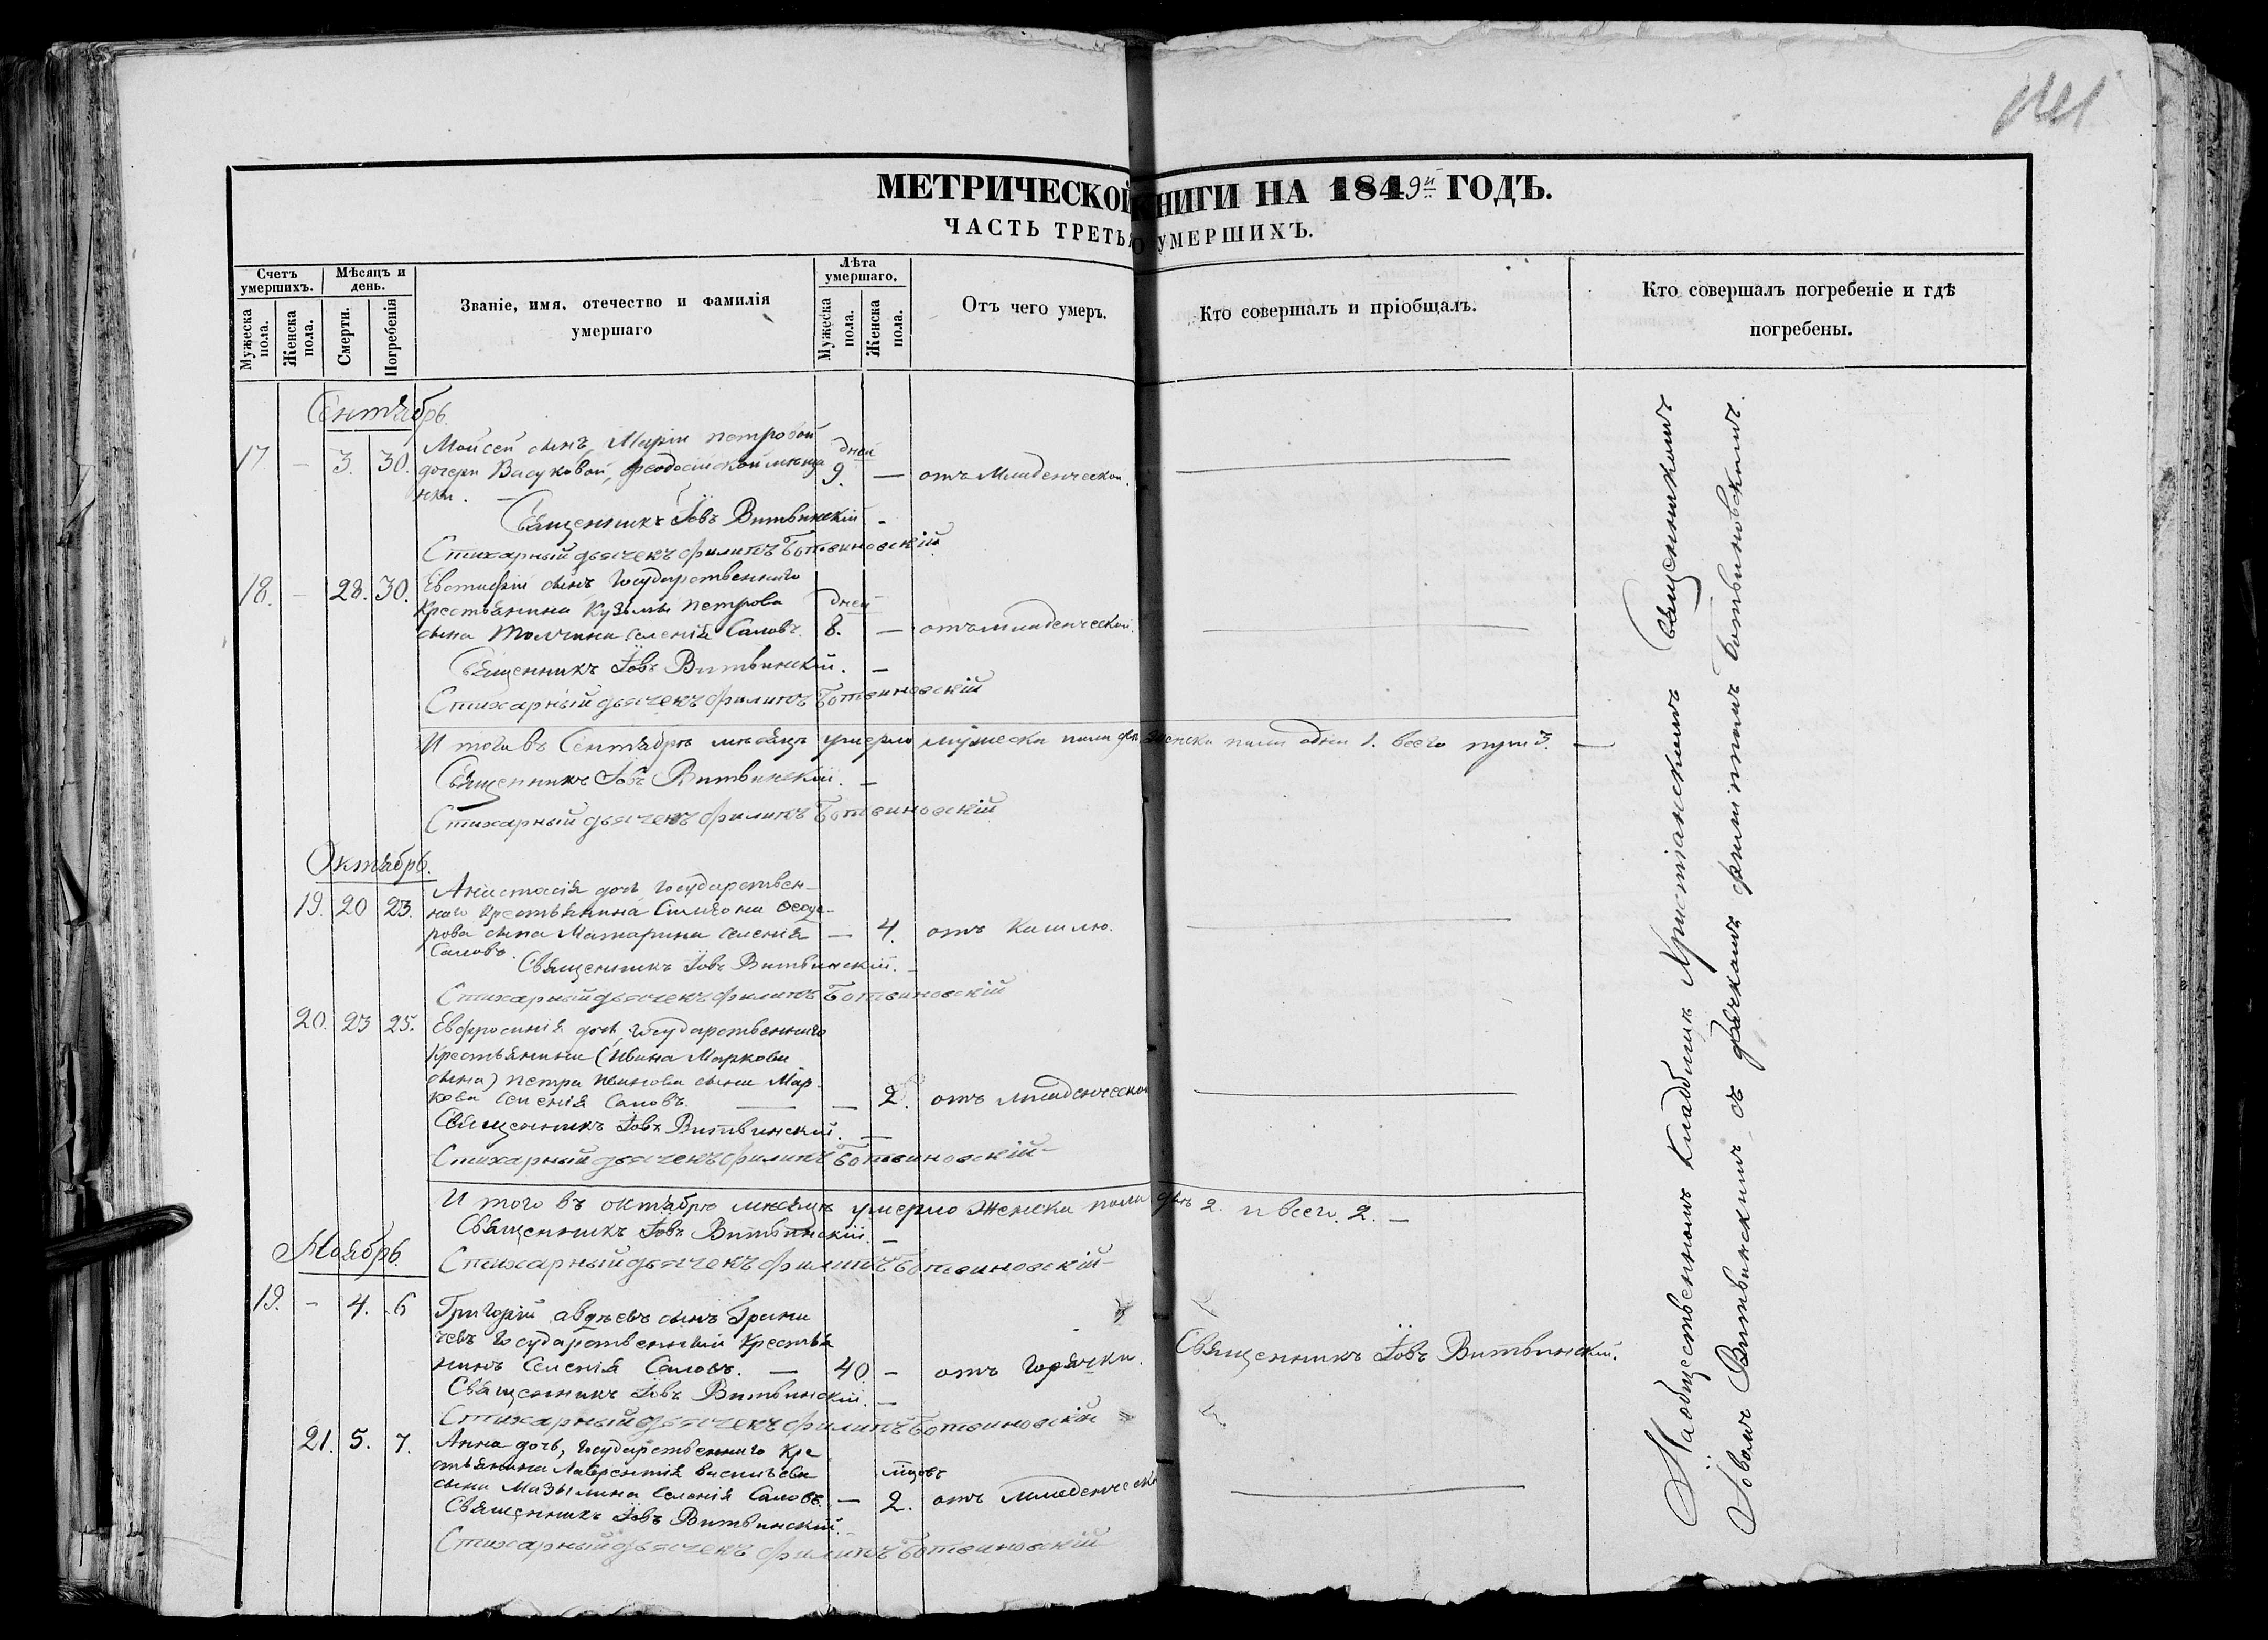 МЕТРИЧЕСКОЙ КНИГИ НА 1849й ГОДЪ.
ЧАСТЬ ТРЕТЬЯ О УМЕРШИХЪ.
Счетъ умершихъ.
Мѣсяцъ и день.
Званіе, имя, отечество и фамилія умершаго
Лѣта умершаго.
Отъ чего умеръ.
Кто совершалъ и пріобщалъ.
Кто совершалъ погребеніе и гдѣ погребены.
Мужеска пола.
Женска пола.
Смерти.
Погребенія
Мужеска пола.
Женска пола.
Сентябрь.
Мойсей сынъ, Маріи петровой
17 - 3. 30. дочери Васуковой, феодосійской мѣща дней 9. — отъ Младенческой. —
нки. —
Священникъ Іовъ Витвинскій. -
Стихарный дьячекъ филипъ Ботвиновскій.
18. - 28. 30. Евстафій сынъ Государственнаго
Крестьянина Кузьмы петрова дней
сына селенія Саловъ. 8. — отъ младенческой. —
Священникъ Іовъ Витвинскій. —
Стихарный дьячекъ филипъ Ботвиновскій
И того въ Сентябрѣ мѣсяцѣ умерло мужеска пола два женска пола одна 1. всего три 3. —
Священникъ Іовъ Витвинскій. —
Стихарный дьячекъ филипъ Ботвиновскій
Октябрь.
Анастасія дочь государствен-
19. 20 23. наго крестьянина Симеона Ѳеодо-
рова сына Матарина селенія — 4. отъ Кашлю. —
Саловъ.
Священникъ Іовъ Витвинскій. —
Стихарный дьячекъ филипъ Ботвиновскій
20. 23 25. Евфросинія дочь, государственнаго
крестьянина (Ивана Маркова
сына) петра иванова сына Мар-
кова селенія Саловъ. — — 2. отъ младенческой —
Священникъ Іовъ Витвинскій. —
Стихарный дьячекъ филипъ Ботвиновскій-
И того въ октябрѣ мѣсяцѣ умерло женска пола двѣ 2. и всего. 2. —
Священникъ Іовъ Витвинскій. —
Ноябрь.
Стихарный дьячекъ филипъ Ботвиновскій-
19. - 4. 6 Григорій авдѣевъ сынъ Грани
чевъ государственный крестья
нинъ Селенія Саловъ. — 40. - отъ горячки. Священникъ Іовъ Витвинскій.
Священникъ Іовъ Витвинскій. —
Стихарный дьячекъ филипъ Ботвиновскій
21. 5. 7. Анна дочь, государственнаго кре
стьянина Лаврентія василіева мцовъ
сына Мазылина селенія Саловъ. — 2. отъ младенческой —
Священникъ Іовъ Витвинскій.
Стихарный дьячекъ филипъ Ботвиновскій
На общественномъ кладбищѣ Христіанскомъ Священникомъ
Іовомъ Витвинскимъ съ дьячкомъ филиппомъ Ботвиновскимъ.